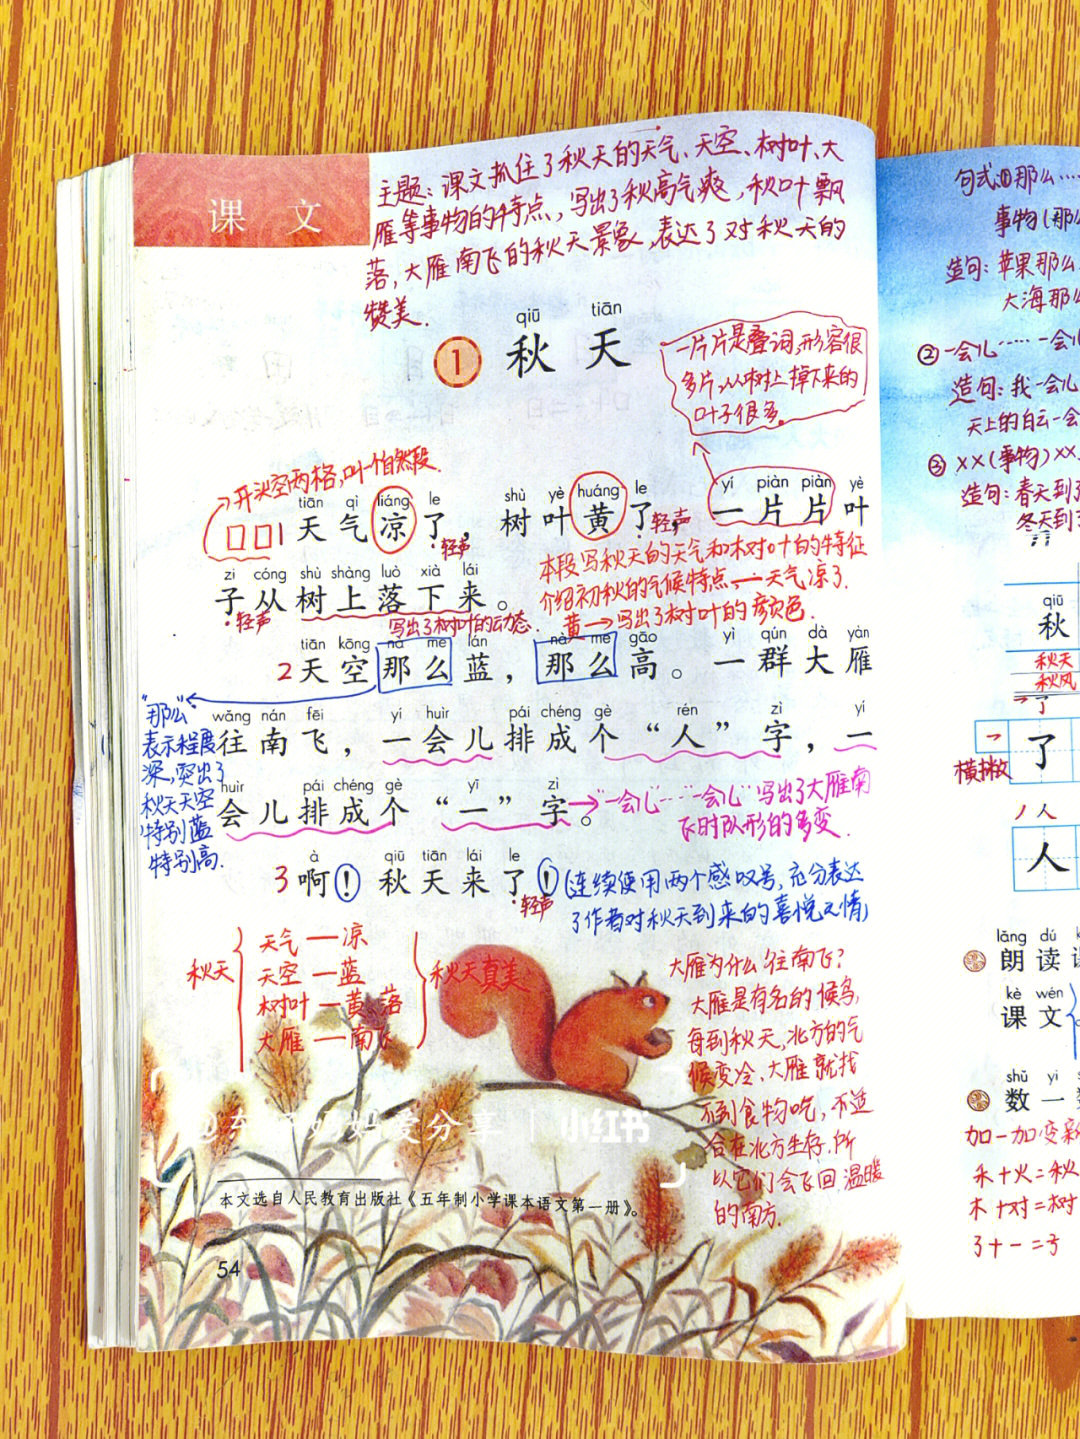 课 文
主题:课文抓住了秋天的天气、天空、树叶、大
雁等事物的特点,写出了秋高气爽,秋叶飘
落,大雁南飞的秋天景象,表达了对秋天的
赞美.
qiū tiān
1 秋 天
一片片是叠词,形容很
多片,从树上掉下来的
叶子很多。
开头空两格,叫个自然段.
tiān qì liáng le shù yè huáng le yí piàn piàn yè
1 天 气 凉 了, 树 叶 黄 了, 一 片 片 叶
·轻声
轻声
本段写秋天的天气和树叶的特征
zi cóng shù shàng luò xià lái
子 从 树 上 落 下 来 。
·轻声
写出了树叶的动态.
介绍初秋的气候特点,——天气凉了.
黄→写出了树叶的颜色.
tiān kōng nà me lán nà me gāo yì qún dà yàn
2 天 空 那 么 蓝 , 那 么 高 。 一 群 大 雁
"那么"
表示程度
深,突出了
秋天天空
特别蓝
特别高.
wǎng nán fēi yí huìr pái chéng gè rén zì yí
往 南 飞 , 一 会 儿 排 成 个 “人” 字 , 一
huìr pái chéng gè yī zì
会 儿 排 成 个 “一” 字 。
→"一会儿"…"一会儿"写出了大雁南
飞时队形的多变.
à qiū tiān lái le
3 啊 ! 秋 天 来 了 !
·轻声
(连续使用两个感叹号,充分表达
了作者对秋天到来的喜悦之情)
秋天
天气—凉
天空—蓝
树叶—黄 落
大雁—南飞
秋天真美
大雁为什么往南飞?
大雁是有名的候鸟,
每到秋天,北方的气
候变冷、大雁就找
不到食物吃,不适
合在北方生存.所
以它们会飞回温暖
的南方.
爱分享 | 小红书
本文选自人民教育出版社《五年制小学课本语文第一册》。
54
句式:①那么……
事物(那么
造句:苹果那么
大海那么
②一会儿……一会儿
造句:我一会儿
天上的白云一会
③××(事物)××
造句:春天到了
冬天到了
qiū
秋
秋天
秋风
→了
横撇
了
丿人
人
lǎng dú
朗 读
kè wén
课 文
shǔ yi
数 一
加一加变新
禾+火=秋
木+对=树
了+一=子